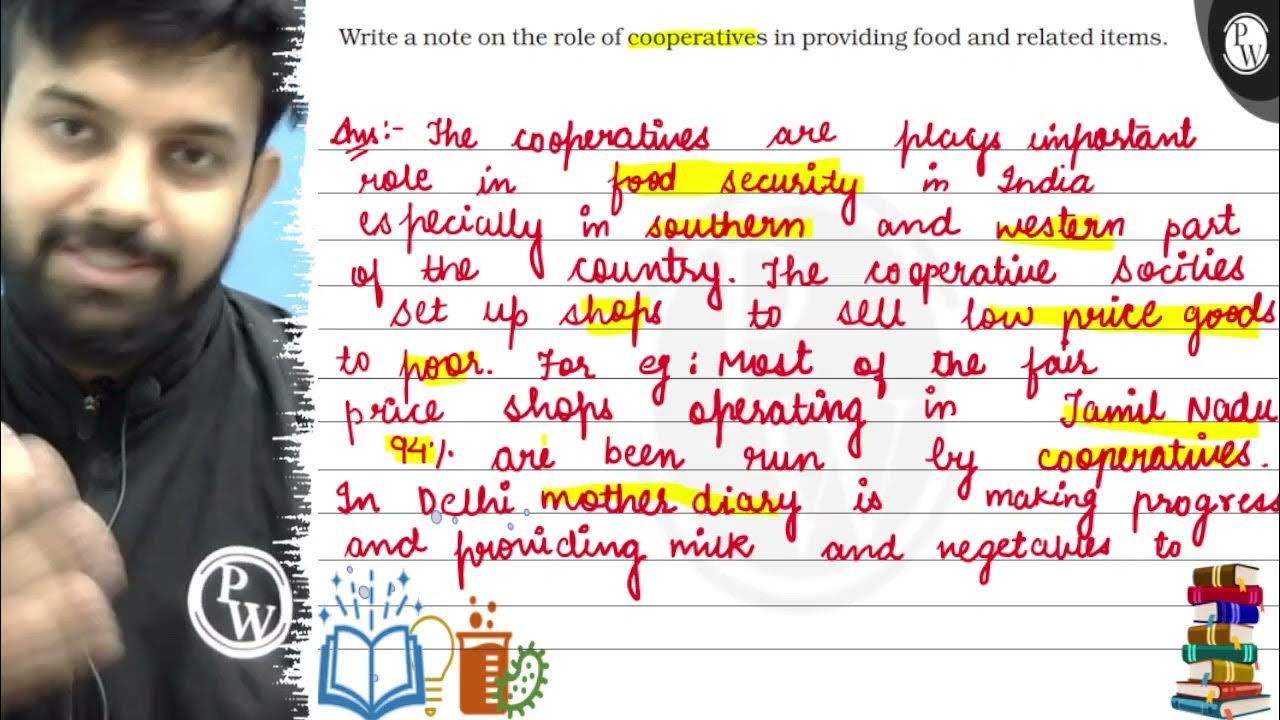 Write a note on the role of cooperatives in providing food and related items.
PW
Ans:- The cooperatives are plays important
role in food security in India
especially in southern and western part
of the country. The cooperative socities
set up shops to sell low price goods
to poor. For eg: Most of the fair
price shops operating in Tamil Nadu
94% are been run by cooperatives.
In Delhi mother diary is making progress
and providing milk and vegetables to
PW
PW